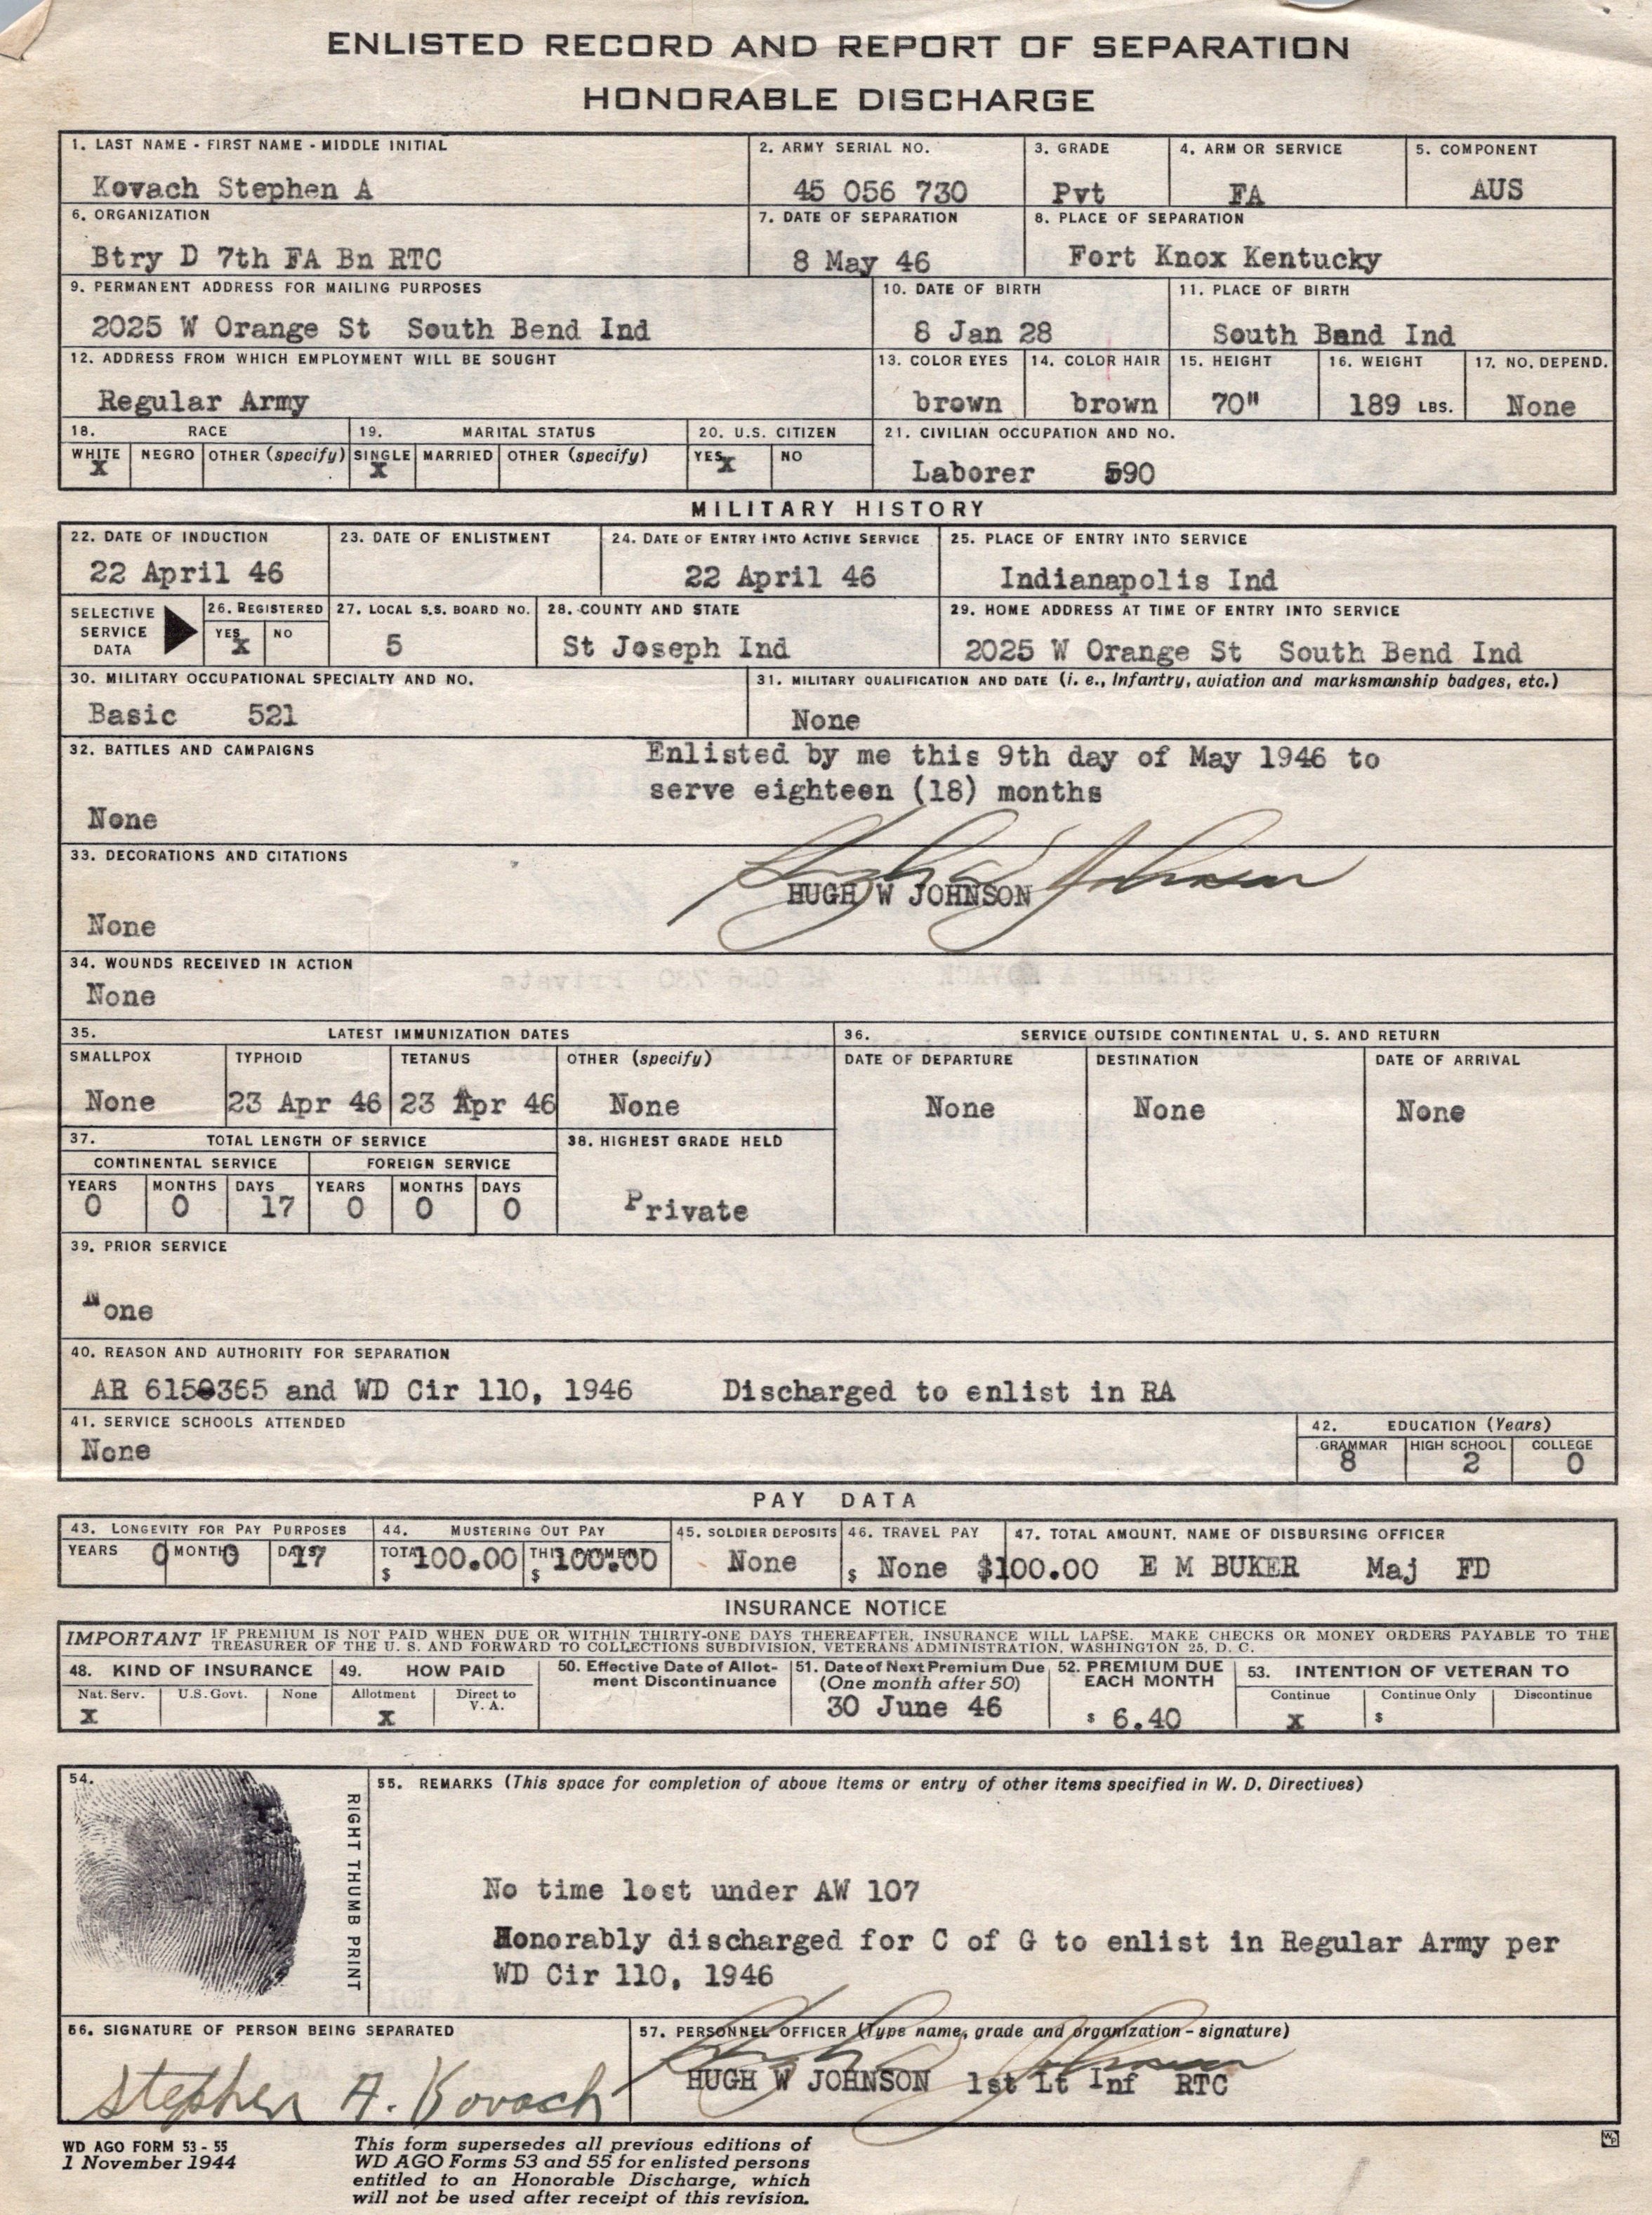 ENLISTED RECORD AND REPORT OF SEPARATION
HONORABLE DISCHARGE
1. LAST NAME - FIRST NAME - MIDDLE INITIAL
Kovach Stephen A
2. ARMY SERIAL NO.
45 056 730
3. GRADE
Pvt
4. ARM OR SERVICE
FA
5. COMPONENT
AUS
6. ORGANIZATION
Btry D 7th FA Bn RTC
7. DATE OF SEPARATION
8 May 46
8. PLACE OF SEPARATION
Fort Knox Kentucky
9. PERMANENT ADDRESS FOR MAILING PURPOSES
2025 W Orange St South Bend Ind
10. DATE OF BIRTH
8 Jan 28
11. PLACE OF BIRTH
South Bend Ind
12. ADDRESS FROM WHICH EMPLOYMENT WILL BE SOUGHT
Regular Army
13. COLOR EYES
brown
14. COLOR HAIR
brown
15. HEIGHT
70"
16. WEIGHT
189 LBS.
17. NO. DEPEND.
None
18. RACE
WHITE X
NEGRO
OTHER (specify)
19. MARITAL STATUS
SINGLE X
MARRIED
OTHER (specify)
20. U.S. CITIZEN
YES X
NO
21. CIVILIAN OCCUPATION AND NO.
Laborer 590
MILITARY HISTORY
22. DATE OF INDUCTION
22 April 46
23. DATE OF ENLISTMENT
24. DATE OF ENTRY INTO ACTIVE SERVICE
22 April 46
25. PLACE OF ENTRY INTO SERVICE
Indianapolis Ind
SELECTIVE
SERVICE
DATA
26. REGISTERED
YES X
NO
27. LOCAL S.S. BOARD NO.
5
28. COUNTY AND STATE
St Joseph Ind
29. HOME ADDRESS AT TIME OF ENTRY INTO SERVICE
2025 W Orange St South Bend Ind
30. MILITARY OCCUPATIONAL SPECIALTY AND NO.
Basic 521
31. MILITARY QUALIFICATION AND DATE (i. e., Infantry, aviation and marksmanship badges, etc.)
None
32. BATTLES AND CAMPAIGNS
None
Enlisted by me this 9th day of May 1946 to
serve eighteen (18) months
33. DECORATIONS AND CITATIONS
None
HUGH W JOHNSON
34. WOUNDS RECEIVED IN ACTION
None
35. LATEST IMMUNIZATION DATES
SMALLPOX
None
TYPHOID
23 Apr 46
TETANUS
23 Apr 46
OTHER (specify)
None
36. SERVICE OUTSIDE CONTINENTAL U. S. AND RETURN
DATE OF DEPARTURE
None
DESTINATION
None
DATE OF ARRIVAL
None
37. TOTAL LENGTH OF SERVICE
CONTINENTAL SERVICE
FOREIGN SERVICE
YEARS MONTHS DAYS YEARS MONTHS DAYS
0 0 17 0 0 0
38. HIGHEST GRADE HELD
Private
39. PRIOR SERVICE
None
40. REASON AND AUTHORITY FOR SEPARATION
AR 615-365 and WD Cir 110, 1946 Discharged to enlist in RA
41. SERVICE SCHOOLS ATTENDED
None
42. EDUCATION (Years)
GRAMMAR HIGH SCHOOL COLLEGE
8 2 0
PAY DATA
43. LONGEVITY FOR PAY PURPOSES
YEARS 0 MONTHS 0 DAYS 17
44. MUSTERING OUT PAY
TOTAL $ 100.00 THIS PAYMENT $ 100.00
45. SOLDIER DEPOSITS
None
46. TRAVEL PAY
$ None
47. TOTAL AMOUNT, NAME OF DISBURSING OFFICER
$100.00 E M BUKER Maj FD
INSURANCE NOTICE
IMPORTANT IF PREMIUM IS NOT PAID WHEN DUE OR WITHIN THIRTY-ONE DAYS THEREAFTER, INSURANCE WILL LAPSE. MAKE CHECKS OR MONEY ORDERS PAYABLE TO THE
TREASURER OF THE U. S. AND FORWARD TO COLLECTIONS SUBDIVISION, VETERANS ADMINISTRATION, WASHINGTON 25, D. C.
48. KIND OF INSURANCE
Nat. Serv. U.S. Govt. None
X
49. HOW PAID
Allotment Direct to V. A.
X
50. Effective Date of Allot-
ment Discontinuance
51. Date of Next Premium Due
(One month after 50)
30 June 46
52. PREMIUM DUE
EACH MONTH
$ 6.40
53. INTENTION OF VETERAN TO
Continue Continue Only Discontinue
X $
54.
RIGHT THUMB PRINT
55. REMARKS (This space for completion of above items or entry of other items specified in W. D. Directives)
No time lost under AW 107
Honorably discharged for C of G to enlist in Regular Army per
WD Cir 110, 1946
56. SIGNATURE OF PERSON BEING SEPARATED
Stephen A. Kovach
57. PERSONNEL OFFICER (Type name, grade and organization - signature)
HUGH W JOHNSON 1st Lt Inf RTC
WD AGO FORM 53 - 55
1 November 1944
This form supersedes all previous editions of
WD AGO Forms 53 and 55 for enlisted persons
entitled to an Honorable Discharge, which
will not be used after receipt of this revision.